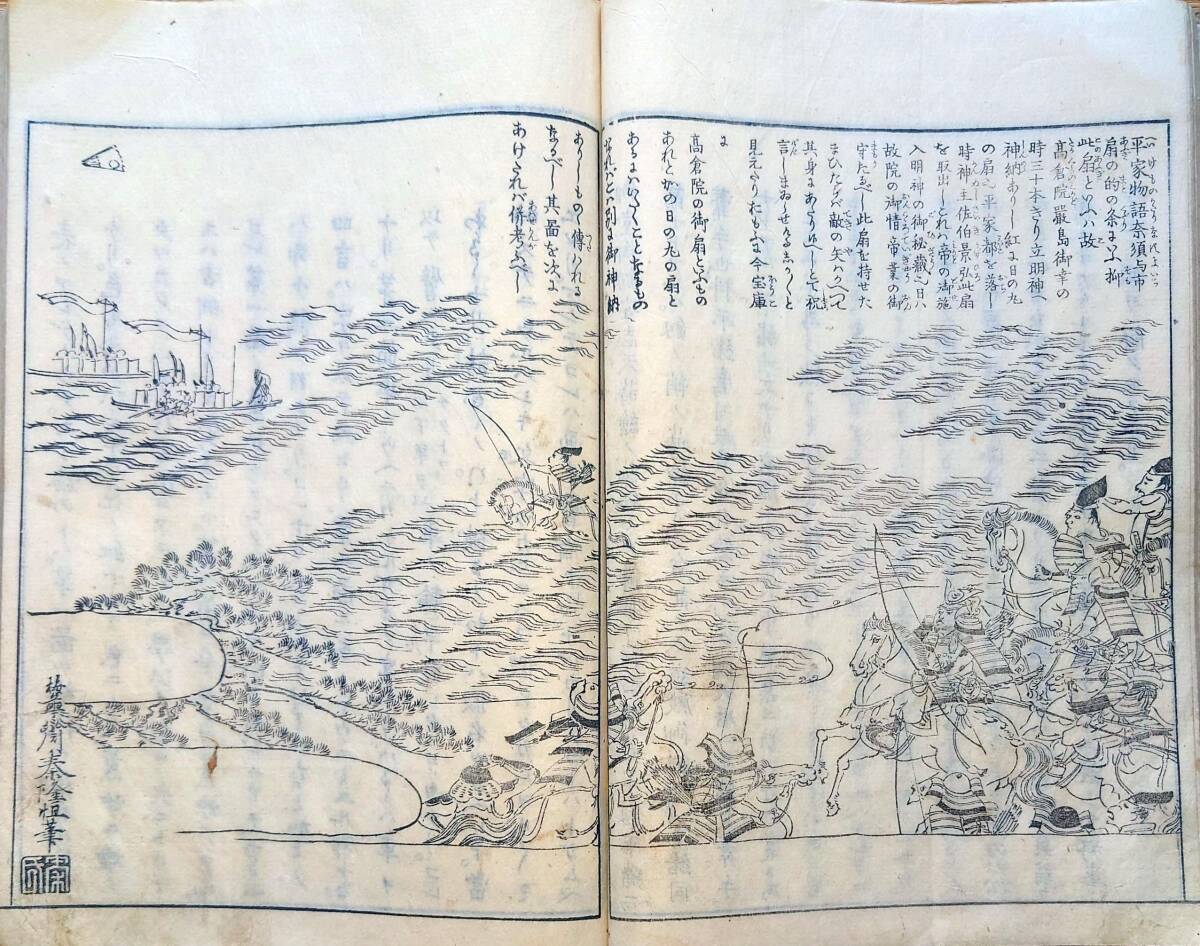 平家物語奈須与市
扇の的の条にいふ抑
此扇といふハ故
高倉院嚴島御幸の
時三十本きり立明神へ
神納ありし紅に日の丸
の扇也平家都を落し
時神主佐伯景弘此扇
を取出しこれハ帝の御施
入明神の御秘蔵也日ハ
故院の御情帝業の御
守たるべし此扇を持せた
まひたらバ敵の矢ハかへつて
其身にあたりぬべしとて祝
言しまゐせけるしか〳〵と
見えたりたもふに今宝庫
に
高倉院の御扇といふもの
あれどかの日の丸の扇と
あるにハいたくことなるもの
なれバとハ別に御神納
ありしものゝ傳ハれる
なるべし其畧を次に
あけたれバ併考ふべし
齋秦隆恒筆